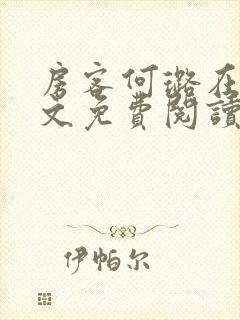 房客何璐在
文免費閱讀
伊帕尔